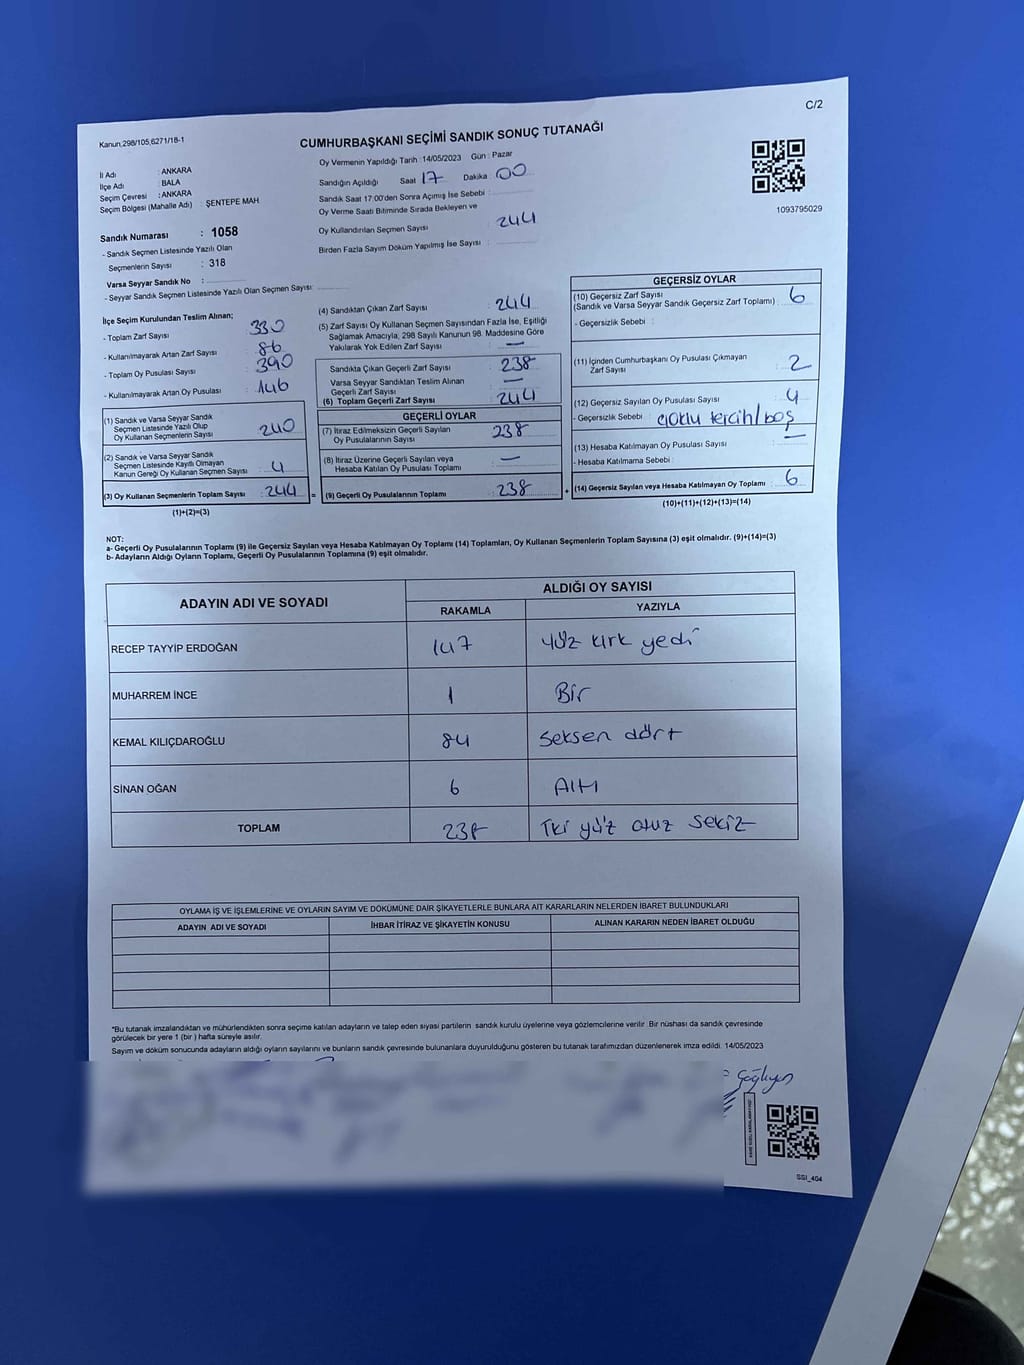 C/2
Kanun;298/105,6271/18-1
CUMHURBAŞKANI SEÇİMİ SANDIK SONUÇ TUTANAĞI
İl Adı : ANKARA
İlçe Adı : BALA
Seçim Çevresi : ANKARA
Seçim Bölgesi (Mahalle Adı) : ŞENTEPE MAH
Sandık Numarası : 1058
- Sandık Seçmen Listesinde Yazılı Olan
Seçmenlerin Sayısı : 318
Varsa Seyyar Sandık No :
- Seyyar Sandık Seçmen Listesinde Yazılı Olan Seçmen Sayısı :
Oy Vermenin Yapıldığı Tarih 14/05/2023 Gün : Pazar
Sandığın Açıldığı Saat 17 Dakika 00
Sandık Saat 17:00'den Sonra Açımış İse Sebebi :
Oy Verme Saati Bitiminde Sırada Bekleyen ve
Oy Kullandırılan Seçmen Sayısı : 244
Birden Fazla Sayım Döküm Yapılmış İse Sayısı :
1093795029
İlçe Seçim Kurulundan Teslim Alınan;
- Toplam Zarf Sayısı : 330
- Kullanılmayarak Artan Zarf Sayısı : 86
- Toplam Oy Pusulası Sayısı : 390
- Kullanılmayarak Artan Oy Pusulası : 146
(1) Sandık ve Varsa Seyyar Sandık
Seçmen Listesinde Yazılı Olup
Oy Kullanan Seçmenlerin Sayısı : 240
(2) Sandık ve Varsa Seyyar Sandık
Seçmen Listesinde Kayıtlı Olmayan
Kanun Gereği Oy Kullanan Seçmen Sayısı : 4
(3) Oy Kullanan Seçmenlerin Toplam Sayısı : 244 =
(1)+(2)=(3)
(4) Sandıktan Çıkan Zarf Sayısı : 244
(5) Zarf Sayısı Oy Kullanan Seçmen Sayısından Fazla İse, Eşitliği
Sağlamak Amacıyla, 298 Sayılı Kanunun 98. Maddesine Göre
Yakılarak Yok Edilen Zarf Sayısı : —
Sandıkta Çıkan Geçerli Zarf Sayısı : 238
Varsa Seyyar Sandıktan Teslim Alınan
Geçerli Zarf Sayısı : —
(6) Toplam Geçerli Zarf Sayısı : 244
GEÇERLİ OYLAR
(7) İtiraz Edilmeksizin Geçerli Sayılan
Oy Pusulalarının Sayısı : 238
(8) İtiraz Üzerine Geçerli Sayılan veya
Hesaba Katılan Oy Pusulası Toplamı : —
(9) Geçerli Oy Pusulalarının Toplamı : 238 +
GEÇERSİZ OYLAR
(10) Geçersiz Zarf Sayısı
(Sandık ve Varsa Seyyar Sandık Geçersiz Zarf Toplamı) : 6
- Geçersizlik Sebebi :
(11) İçinden Cumhurbaşkanı Oy Pusulası Çıkmayan
Zarf Sayısı : 2
(12) Geçersiz Sayılan Oy Pusulası Sayısı : 4
- Geçersizlik Sebebi : çoklu tercih/boş
(13) Hesaba Katılmayan Oy Pusulası Sayısı : —
- Hesaba Katılmama Sebebi :
(14) Geçersiz Sayılan veya Hesaba Katılmayan Oy Toplamı : 6
(10)+(11)+(12)+(13)=(14)
NOT:
a- Geçerli Oy Pusulalarının Toplamı (9) ile Geçersiz Sayılan veya Hesaba Katılmayan Oy Toplamı (14) Toplamları, Oy Kullanan Seçmenlerin Toplam Sayısına (3) eşit olmalıdır. (9)+(14)=(3)
b- Adayların Aldığı Oyların Toplamı, Geçerli Oy Pusulalarının Toplamına (9) eşit olmalıdır.
ADAYIN ADI VE SOYADI ALDIĞI OY SAYISI
RAKAMLA YAZIYLA
RECEP TAYYİP ERDOĞAN 147 yüz kırk yedi
MUHARREM İNCE 1 Bir
KEMAL KILIÇDAROĞLU 84 seksen dört
SİNAN OĞAN 6 Altı
TOPLAM 238 İki yüz otuz sekiz
OYLAMA İŞ VE İŞLEMLERİNE VE OYLARIN SAYIM VE DÖKÜMÜNE DAİR ŞİKAYETLERLE BUNLARA AİT KARARLARIN NELERDEN İBARET BULUNDUKLARI
ADAYIN ADI VE SOYADI İHBAR İTİRAZ VE ŞİKAYETİN KONUSU ALINAN KARARIN NEDEN İBARET OLDUĞU
*Bu tutanak imzalandıktan ve mühürlendikten sonra seçime katılan adayların ve talep eden siyasi partilerin sandık kurulu üyelerine veya gözlemcilerine verilir. Bir nüshası da sandık çevresinde
görülecek bir yere 1 (bir ) hafta süreyle asılır.
Sayım ve döküm sonucunda adayların aldığı oyların sayılarını ve bunların sandık çevresinde bulunanlara duyurulduğunu gösteren bu tutanak tarafımızdan düzenlenerek imza edildi. 14/05/2023
SSI_404